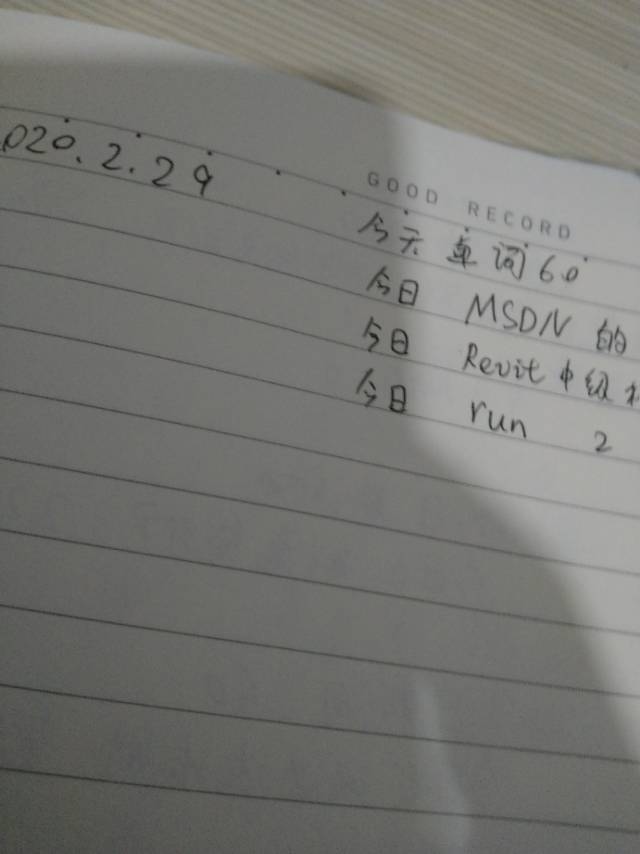 020.2.29
GOOD RECORD
今天 单词60
今日 MSDN 的
今日 Revit中级
今日 run 2